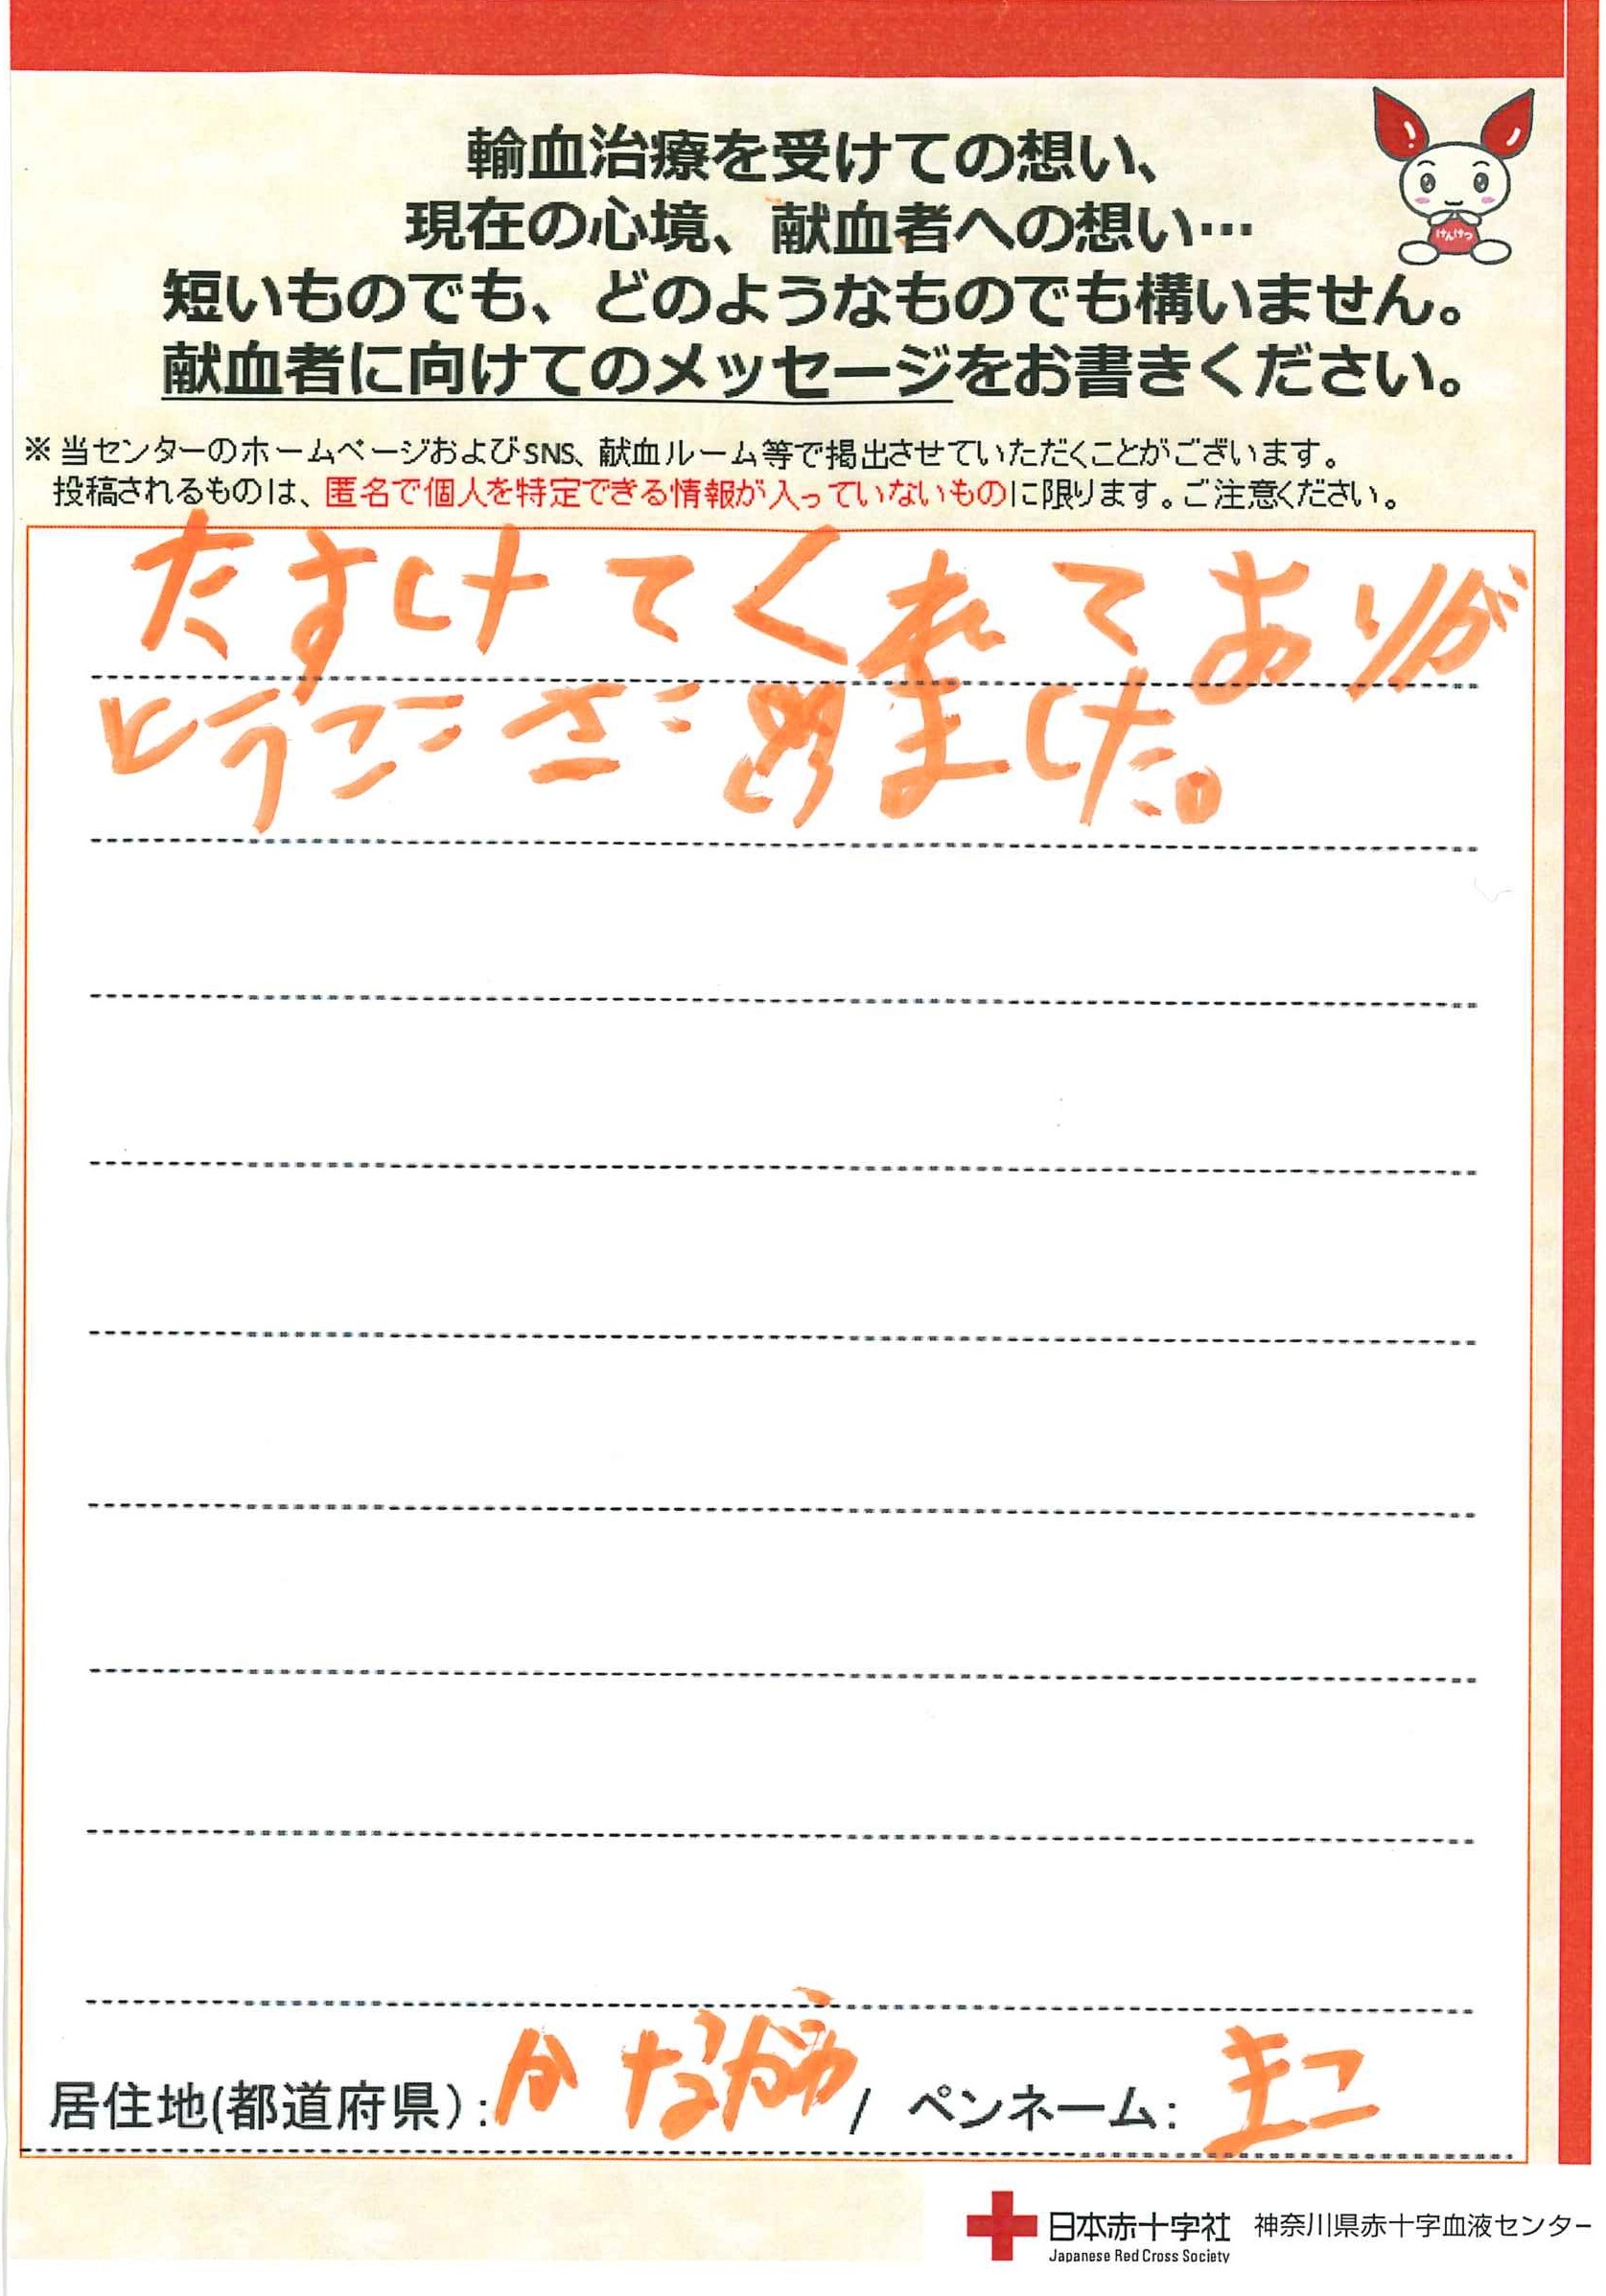 輸血治療を受けての想い、
現在の心境、献血者への想い…
短いものでも、どのようなものでも構いません。
献血者に向けてのメッセージをお書きください。
けんけつ
※当センターのホームページおよびSNS、献血ルーム等で掲出させていただくことがございます。
投稿されるものは、匿名で個人を特定できる情報が入っていないものに限ります。ご注意ください。
たすけてくれてありが
とうございました。
居住地(都道府県): かながわ / ペンネーム: まこ
日本赤十字社 神奈川県赤十字血液センター
Japanese Red Cross Society